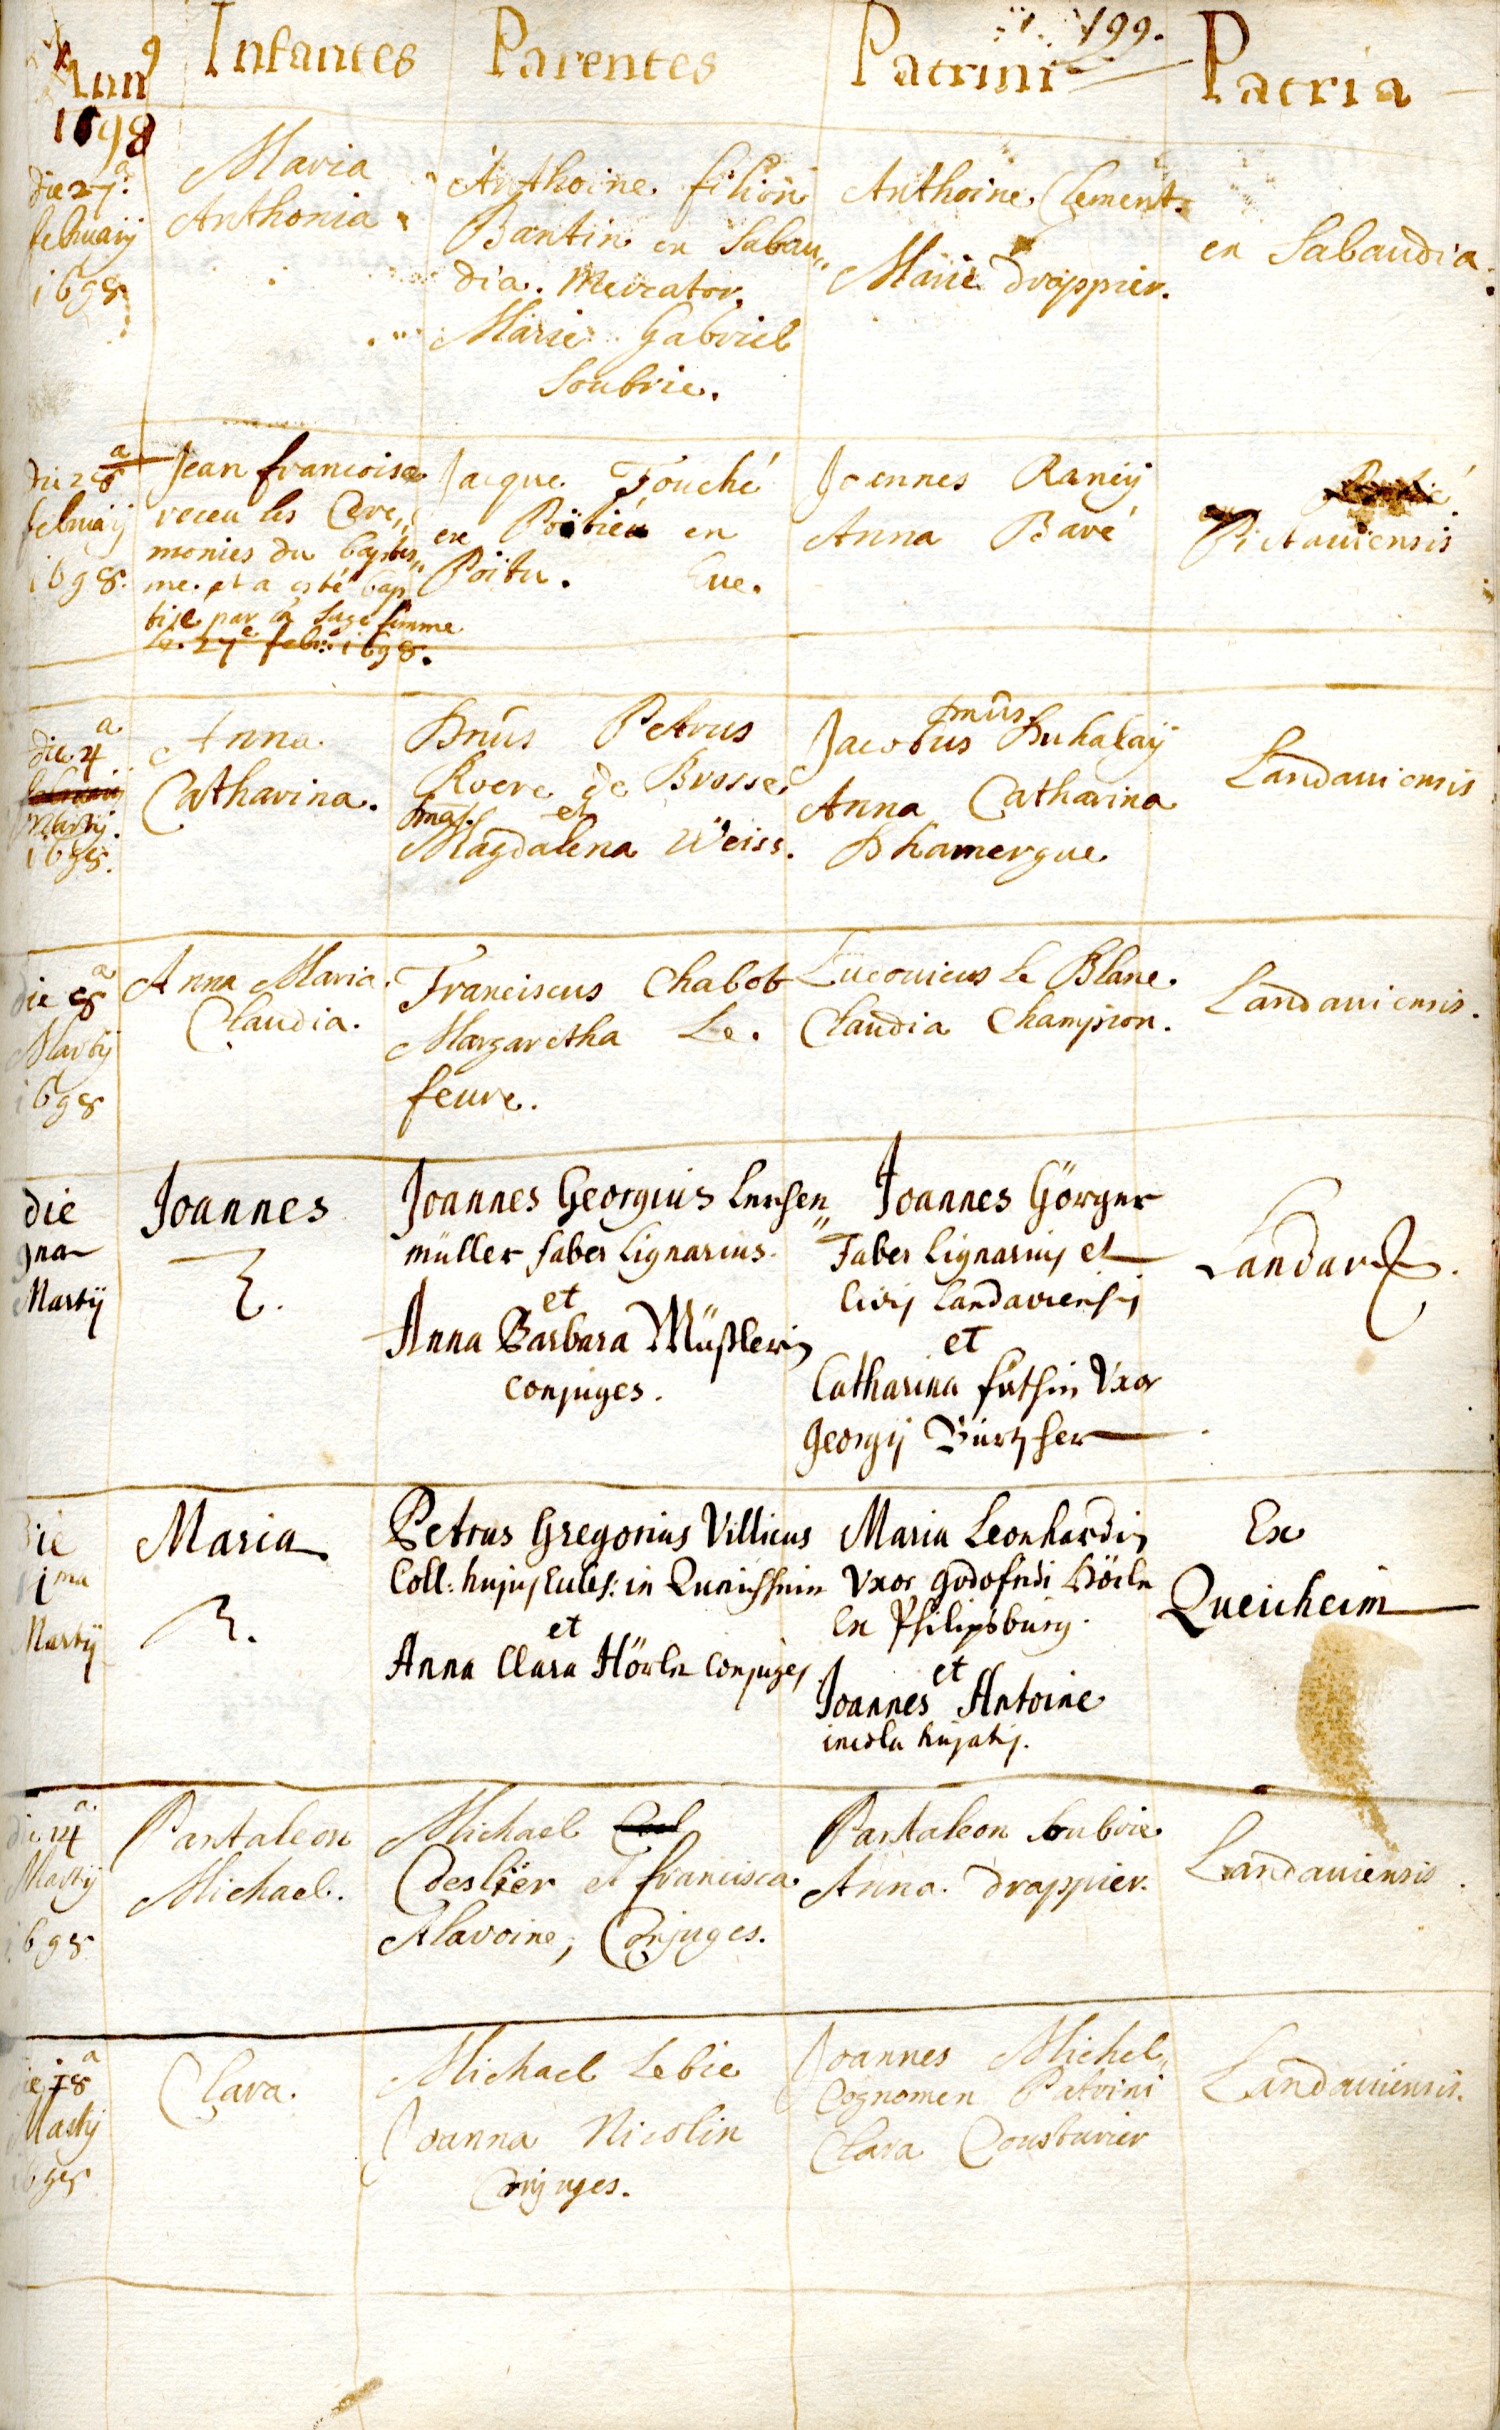 199.
Ann9 Infantes Parentes Patrini Patria
1698
die 27a.
februarij
1698
Maria
Anthonia
Anthoine filion
Bantin en Sabau„
dia. Mercator.
Marie Gabriel
Soubrie.
Anthoine Clement.
Marie Drappier.
en Sabaudia.
die 28a
februarij
1698.
Jean francoise
receu les Cere„
monies du baptes„
me. et a esté bap
tise par la sage femme
le. 27e febr: 1698.
Jacque Touché
en
en
Poitu. Eue.
Joennes Raneij
Anna Bavé
Pictauiensis
die 4a
Martij.
1698.
Anna
Catharina.
Dnûs Petrus
Rvere de Brosse
et
Magdalena Weiss.
Jacobus Duhalaij
Anna Catharina
Dhamergue
Landauiensis
die 8a
Martij
1698
Anna Maria
Claudia.
Franciscus Chabot
Margaretha Le.
feure.
Ludouicus le Blanc.
Claudia Champion.
Landauiensis.
die
9na
Martij
Joannes
Joannes Georgius Lerchen„
müller faber lignarius.
et
Anna Barbara Müßlerin
conjuges.
Joannes Görger
Faber lignarius et
civis Landaviensis
et
Catharina Uxor
Georgij
Landau.
die
11ma
Martij
Maria
Petrus Gregorius Villicus
Coll: hujus in
et
Anna Clara Hörle conjuges
Maria Leonhardin
Vxor godofridi Hörle
Ex Philipsburg.
et
Joannes Antoine
incola hujatis.
Ex
Queicheim
die 14a.
Martij
1698
Pantaleon
Michael.
Michael
Coeslier et francisca
Alavoine, Conjuges.
Pantaleon Soubrie
Anna Drappier.
Landauiensis.
die 18a
Martij
1698
Clara.
Michael Lebie
Joanna Nicolin
Conjuges.
Joannes Michel„
Cognomen Patrini
Clara Cousturier
Landauiensis.